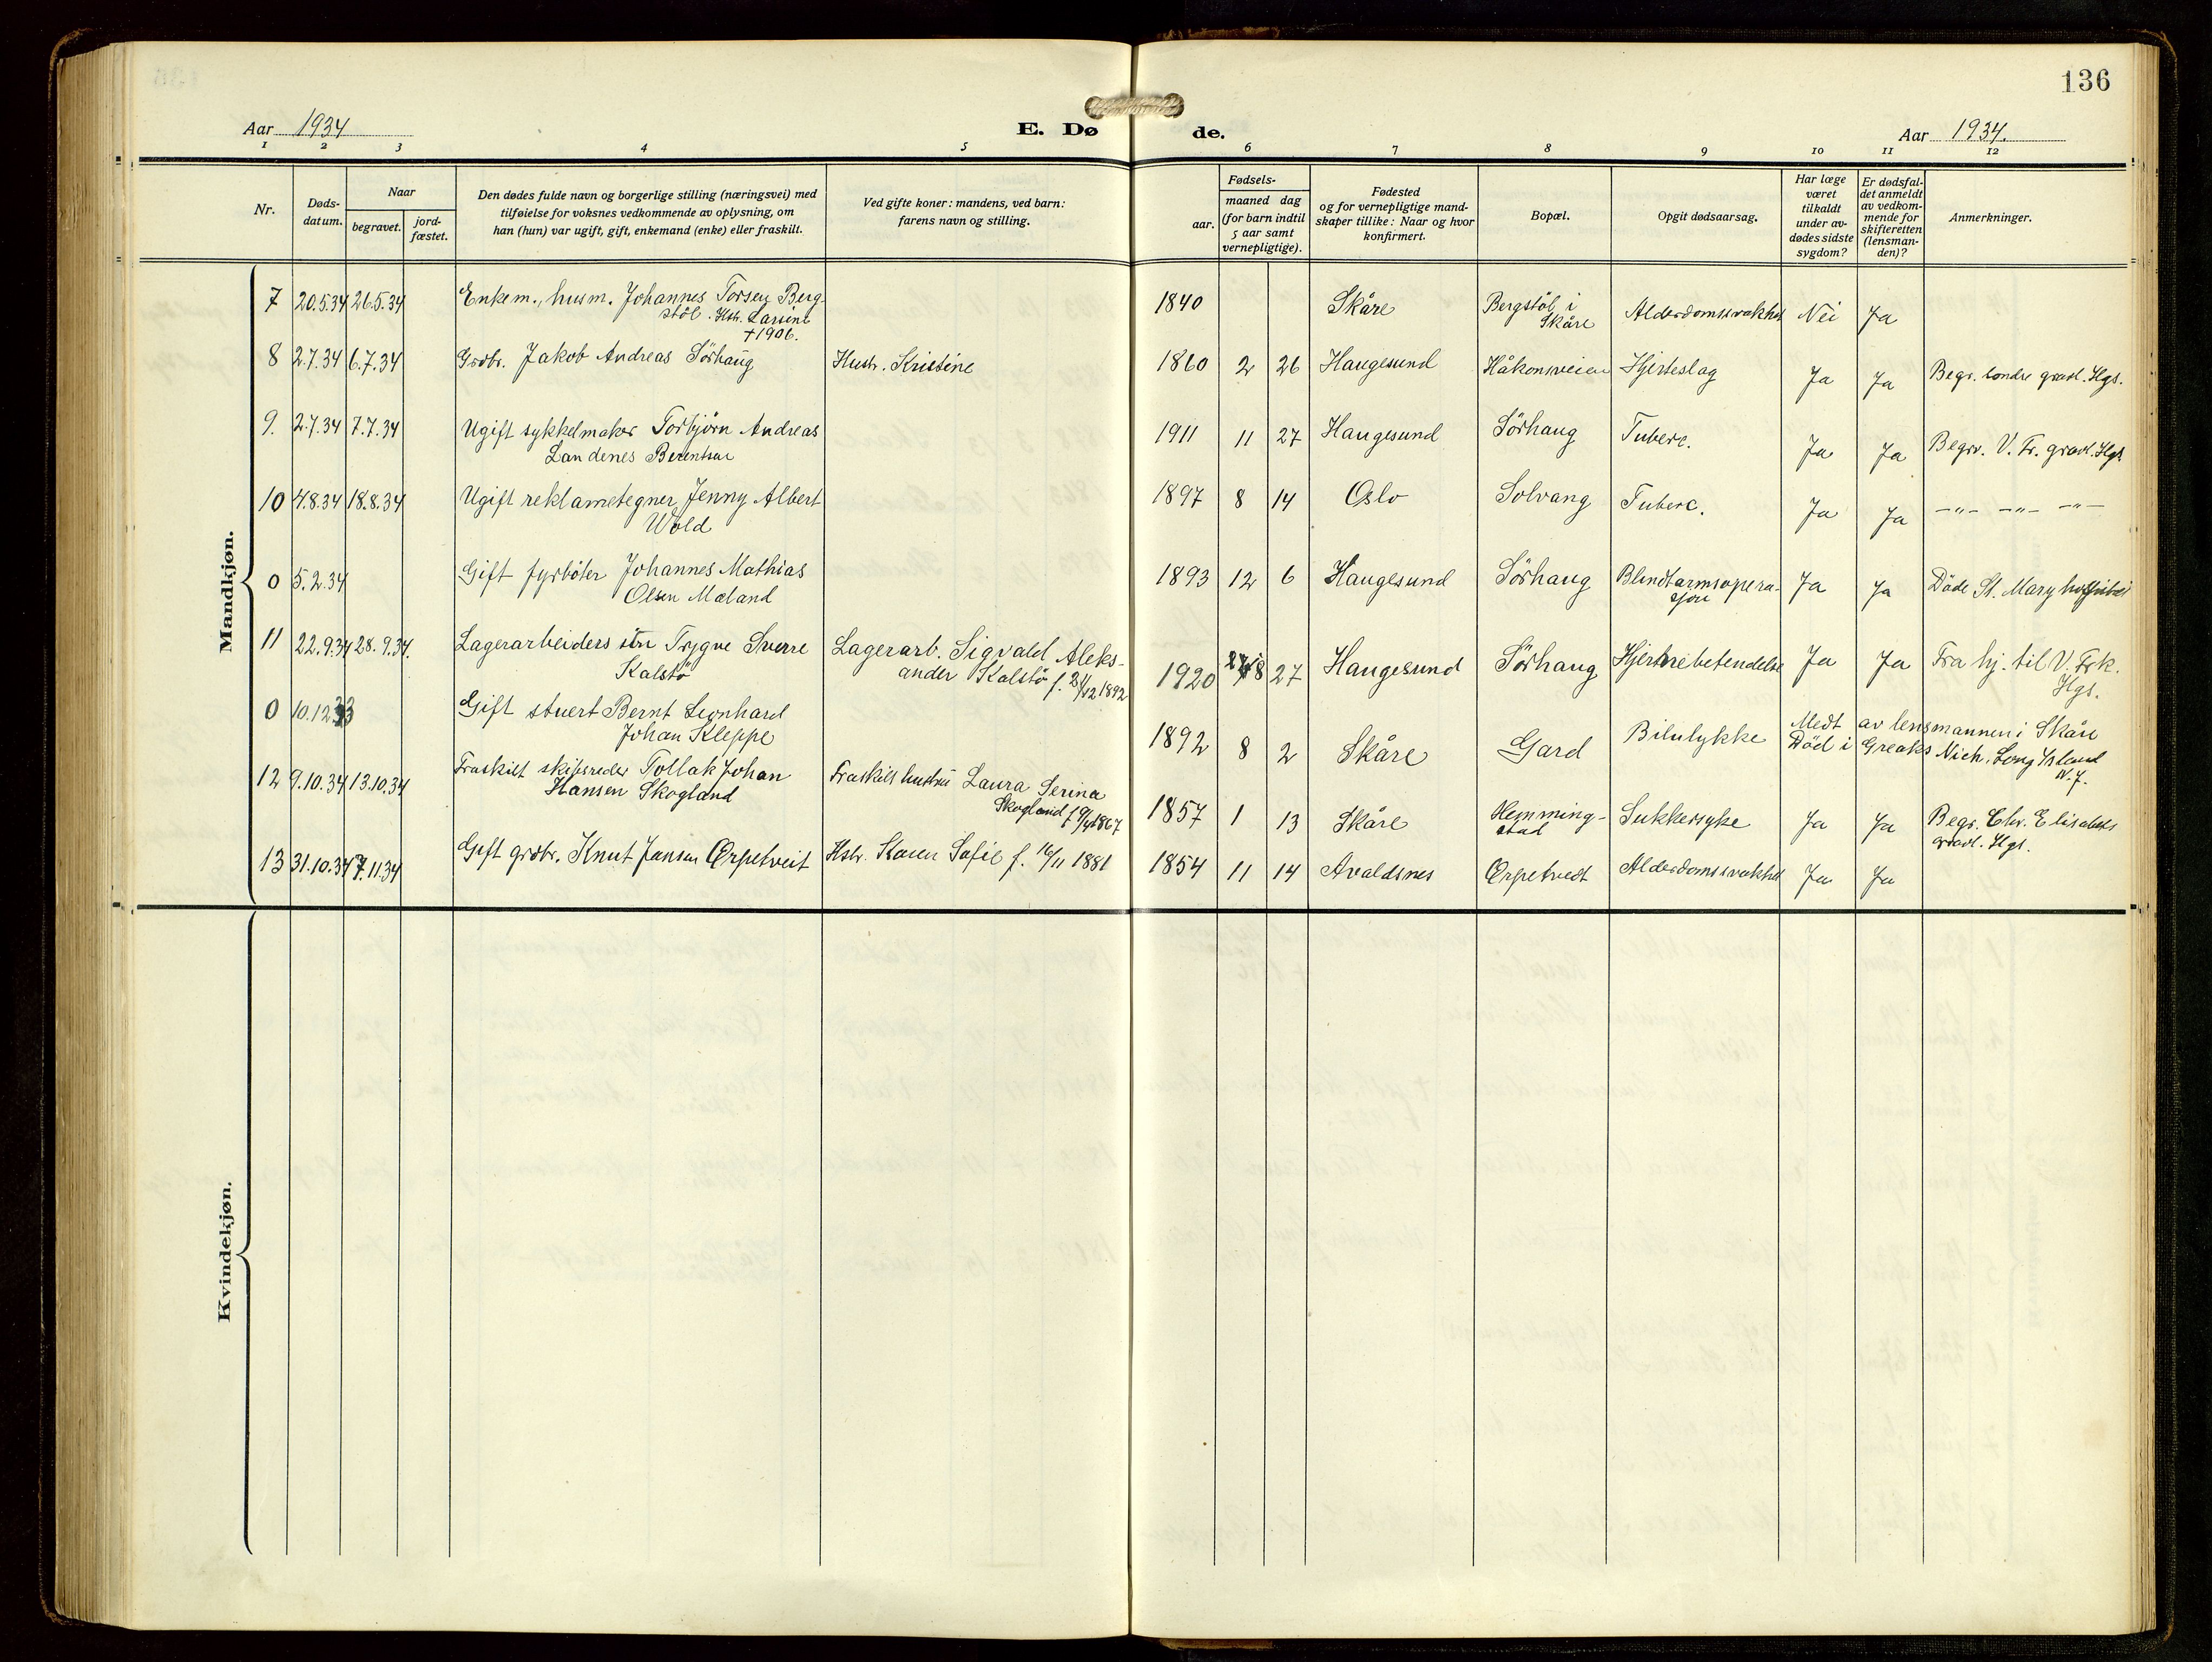 136
Aar 1934
E. Dø de.
Aar 1934.
1 2 3 4 5 6 7 8 9 10 11 12
Nr.
Døds-
datum.
Naar
begravet.
jord-
fæstet.
Den dødes fulde navn og borgerlige stilling (næringsvei) med
tilføielse for voksnes vedkommende av oplysning, om
han (hun) var ugift, gift, enkemand (enke) eller fraskilt.
Ved gifte koner: mandens, ved barn:
farens navn og stilling.
Fødsels-
aar.
maaned dag
(for barn indtil
5 aar samt
vernepligtige).
Fødested
og for vernepligtige mand-
skaper tillike: Naar og hvor
konfirmert.
Bopæl.
Opgit dødsaarsag.
Har læge
været
tilkaldt
under av-
dødes sidste
sygdom?
Er dødsfal-
det anmeldt
av vedkom-
mende for
skifteretten
(lensman-
den)?
Anmerkninger.
Mandkjøn.
7 20.5.34 26.5.34 Enkem., husm. Johannes Torsen Berg- 1840 Skåre Bergstöl i Alderdomssvakhet Nei Ja
stöl. Hstr. Larsine Skåre
†1906.
8 2.7.34 6.7.34 Grdbr. Jakob Andreas Sörhaug Hustr. Kristine 1860 2 26 Haugesund Håkonsveien Hjerteslag Ja Ja Begr. söndre gravl. Hgs.
9. 2.7.34 7.7.34 Ugift sykkelmaker Torbjörn Andreas 1911 11 27 Haugesund Sörhaug Tuberc. Ja Ja Begrv. V. Fr. gravl. Hgs
Landenes Berentsen
10 4.8.34 18.8.34 Ugift reklametegner Jenny Albert 1897 8 14 Oslo Solvang Tuberc. Ja Ja —"— —"— —"—
Wold
0 5.2.34 Gift fyrböter Johannes Mathias 1893 12 6 Haugesund Sörhaug Blindtarmsopera- Ja Ja Döde St. Mary hospital
Olsen Mæland sjon
11 22.9.34 28.9.34. Lagerarbeiders sön Trygve Sverre Lagerarb. Sigvald Aleks- 1920 8 27 Haugesund Sörhaug Hjernebetendelse Ja Ja Fra hj. til V. Frk.
Kalstö ander Kalstö f. 21/12 1892 Hgs.
0 10.12.33 Gift stuert Bernt Leonhard 1892 8 2 Skåre Gard Bilulykke Medt av lensmannen i Skåre
Johan Kleppe Död i Greaks Nich. Long Island
N.J.
12 9.10.34 13.10.34 Fraskilt skipsreder Tollak Johan Fraskilt hustru Laura Serina 1857 1 13 Skåre Hemming- Sukkersyke Ja Ja Begr. Chr. Elisabeths
Hansen Skogland Skogland f. 9/4 1867 stad gravl. Hgs.
13 31.10.34 7.11.34 Gift grdbr. Knut Jansen Ørpetveit Hstr. Karen Sofie f. 16/11 1881 1854 11 14 Avaldsnes Ørpetvedt Alderdomssvakhet Ja Ja
Kvindekjøn.